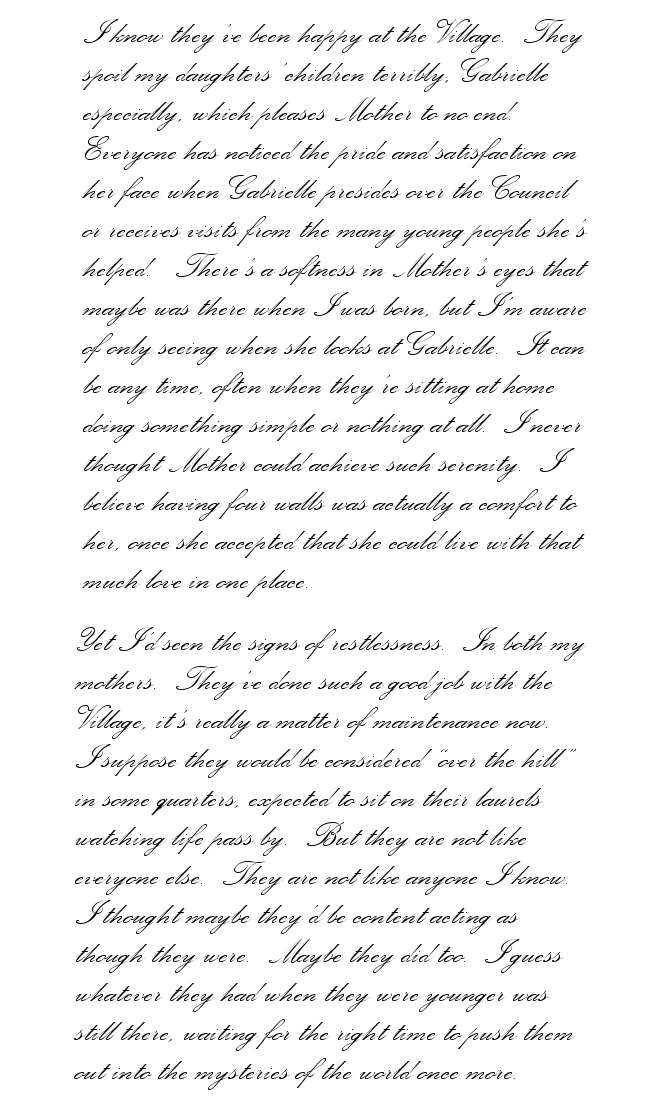 I know they've been happy at the Village. They
spoil my daughters' children terribly, Gabrielle
especially, which pleases Mother to no end.
Everyone has noticed the pride and satisfaction on
her face when Gabrielle presides over the Council
or receives visits from the many young people she's
helped. There's a softness in Mother's eyes that
maybe was there when I was born, but I'm aware
of only seeing when she looks at Gabrielle. It can
be any time, often when they're sitting at home
doing something simple or nothing at all. I never
thought Mother could achieve such serenity. I
believe having four walls was actually a comfort to
her, once she accepted that she could live with that
much love in one place.
Yet I'd seen the signs of restlessness. In both my
mothers. They've done such a good job with the
Village, it's really a matter of maintenance now.
I suppose they would be considered "over the hill"
in some quarters, expected to sit on their laurels
watching life pass by. But they are not like
everyone else. They are not like anyone I know.
I thought maybe they'd be content acting as
though they were. Maybe they did too. I guess
whatever they had when they were younger was
still there, waiting for the right time to push them
out into the mysteries of the world once more.